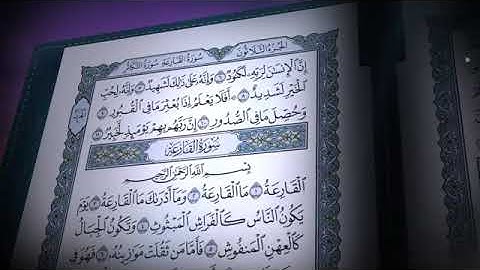 الجزء الثلاثون سورة القارعة سورة التكاثر
إِنَّ الْإِنسَانَ لِرَبِّهِ لَكَنُودٌ ٦ وَإِنَّهُ عَلَىٰ ذَٰلِكَ لَشَهِيدٌ ٧ وَإِنَّهُ لِحُبِّ
الْخَيْرِ لَشَدِيدٌ ٨ أَفَلَا يَعْلَمُ إِذَا بُعْثِرَ مَا فِي الْقُبُورِ ٩
وَحُصِّلَ مَا فِي الصُّدُورِ ١٠ إِنَّ رَبَّهُم بِهِمْ يَوْمَئِذٍ لَّخَبِيرٌ ١١
سُورَةُ الْقَارِعَةِ
بِسْمِ اللَّهِ الرَّحْمَٰنِ الرَّحِيمِ
الْقَارِعَةُ ١ مَا الْقَارِعَةُ ٢ وَمَا أَدْرَاكَ مَا الْقَارِعَةُ ٣ يَوْمَ
يَكُونُ النَّاسُ كَالْفَرَاشِ الْمَبْثُوثِ ٤ وَتَكُونُ الْجِبَالُ
كَالْعِهْنِ الْمَنفُوشِ ٥ فَأَمَّا مَن ثَقُلَتْ مَوَازِينُهُ ٦ فَهُوَ فِي